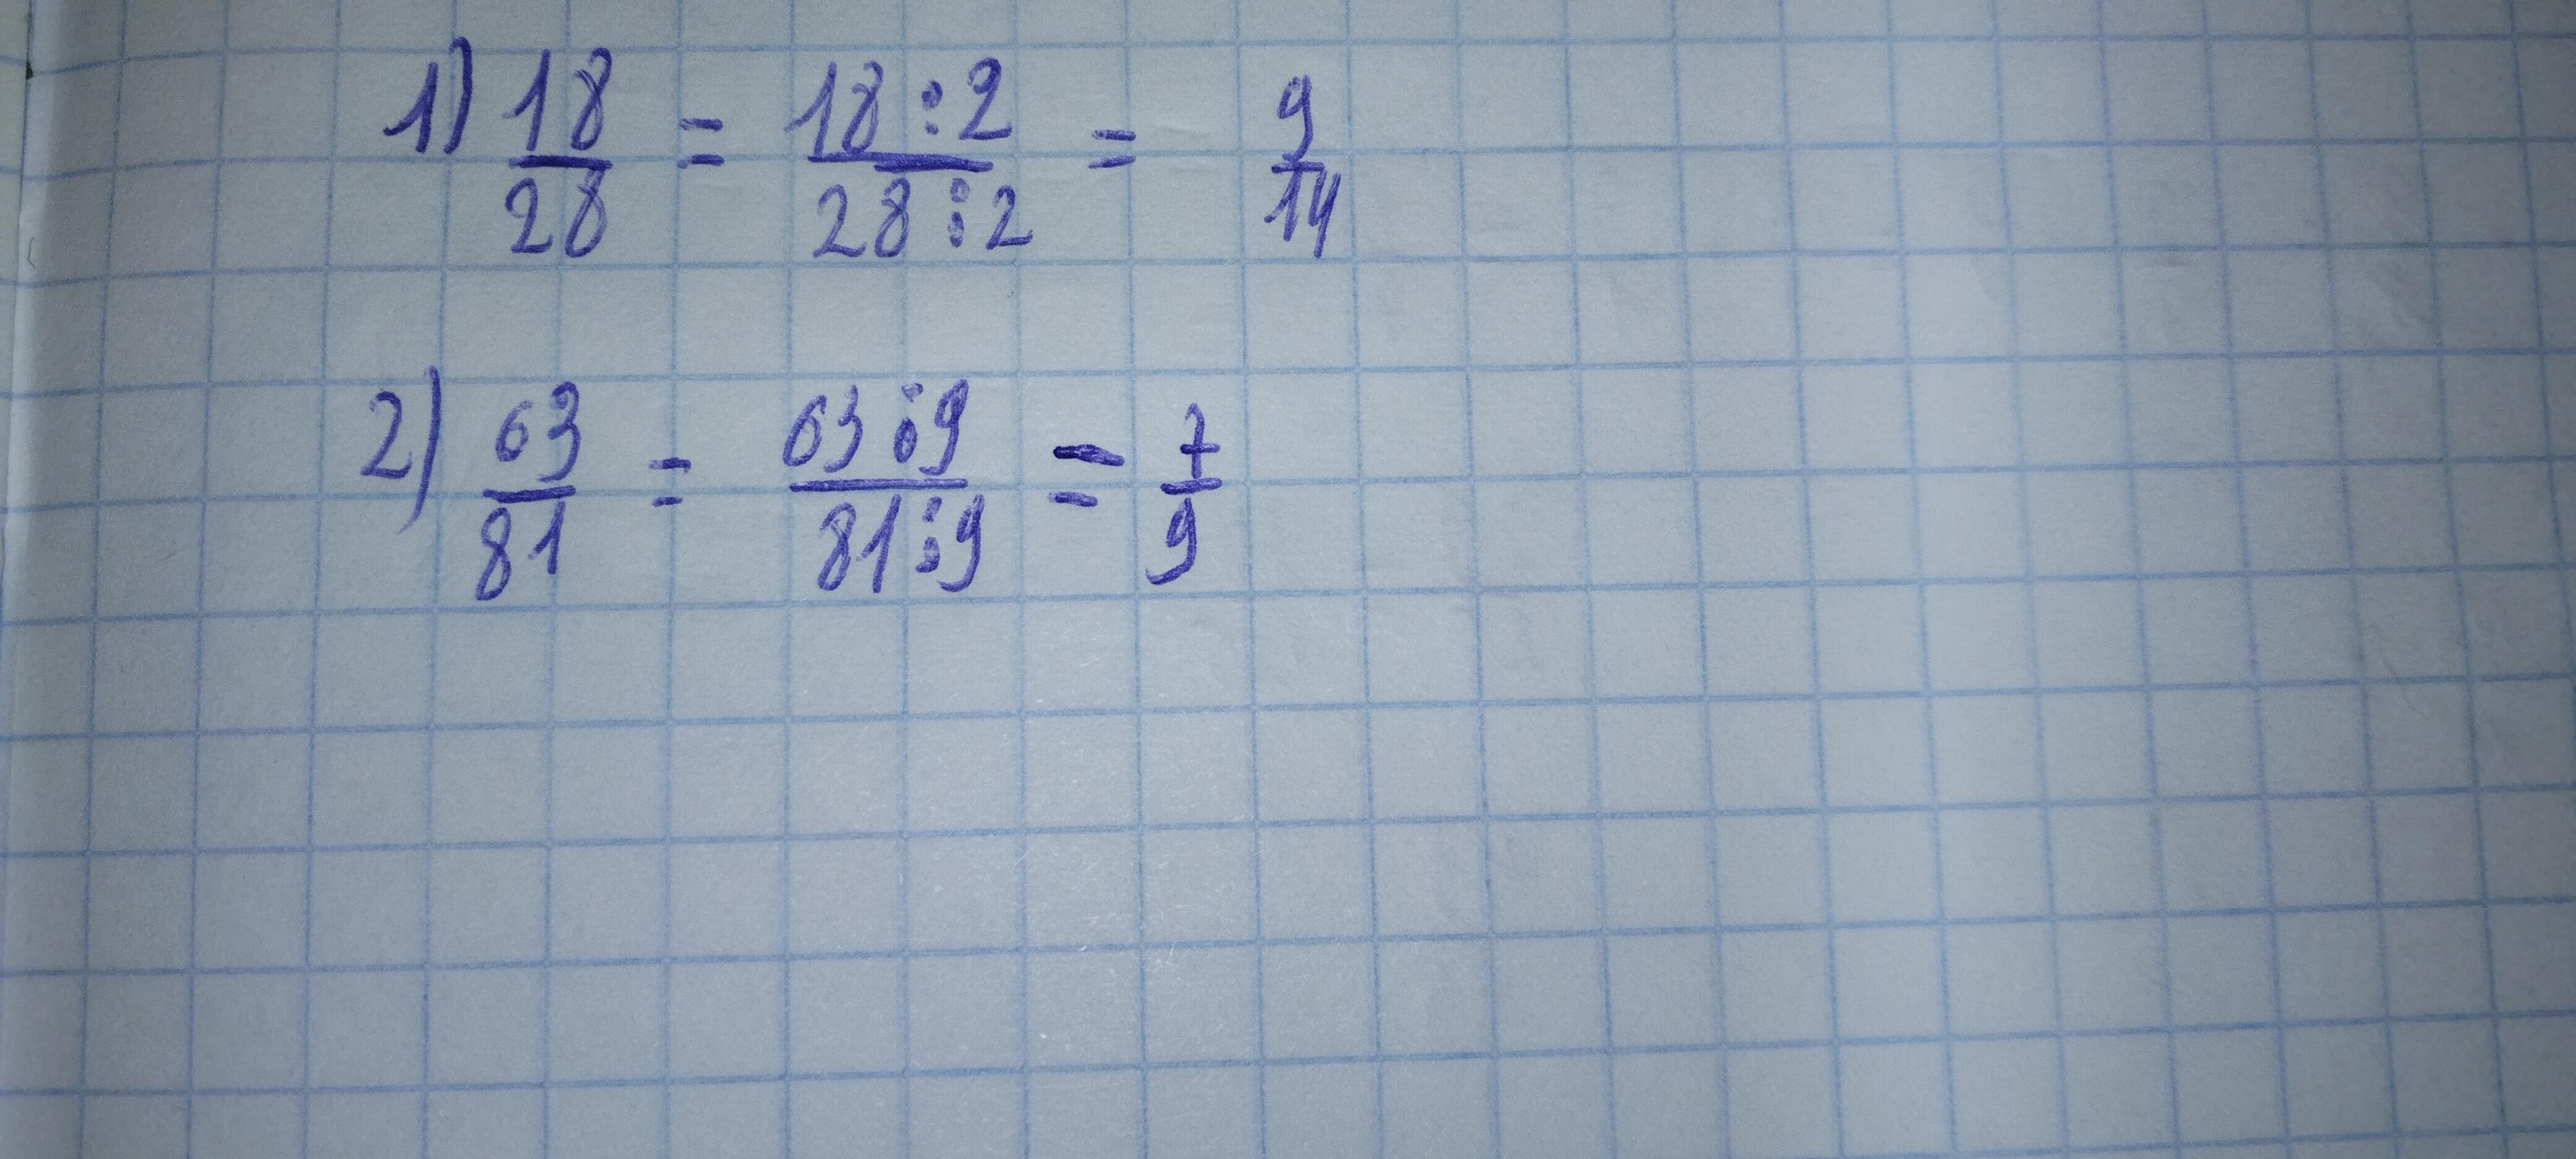 1) 18/28 = 18:2/28:2 = 9/14
2) 63/81 = 63:9/81:9 = 7/9